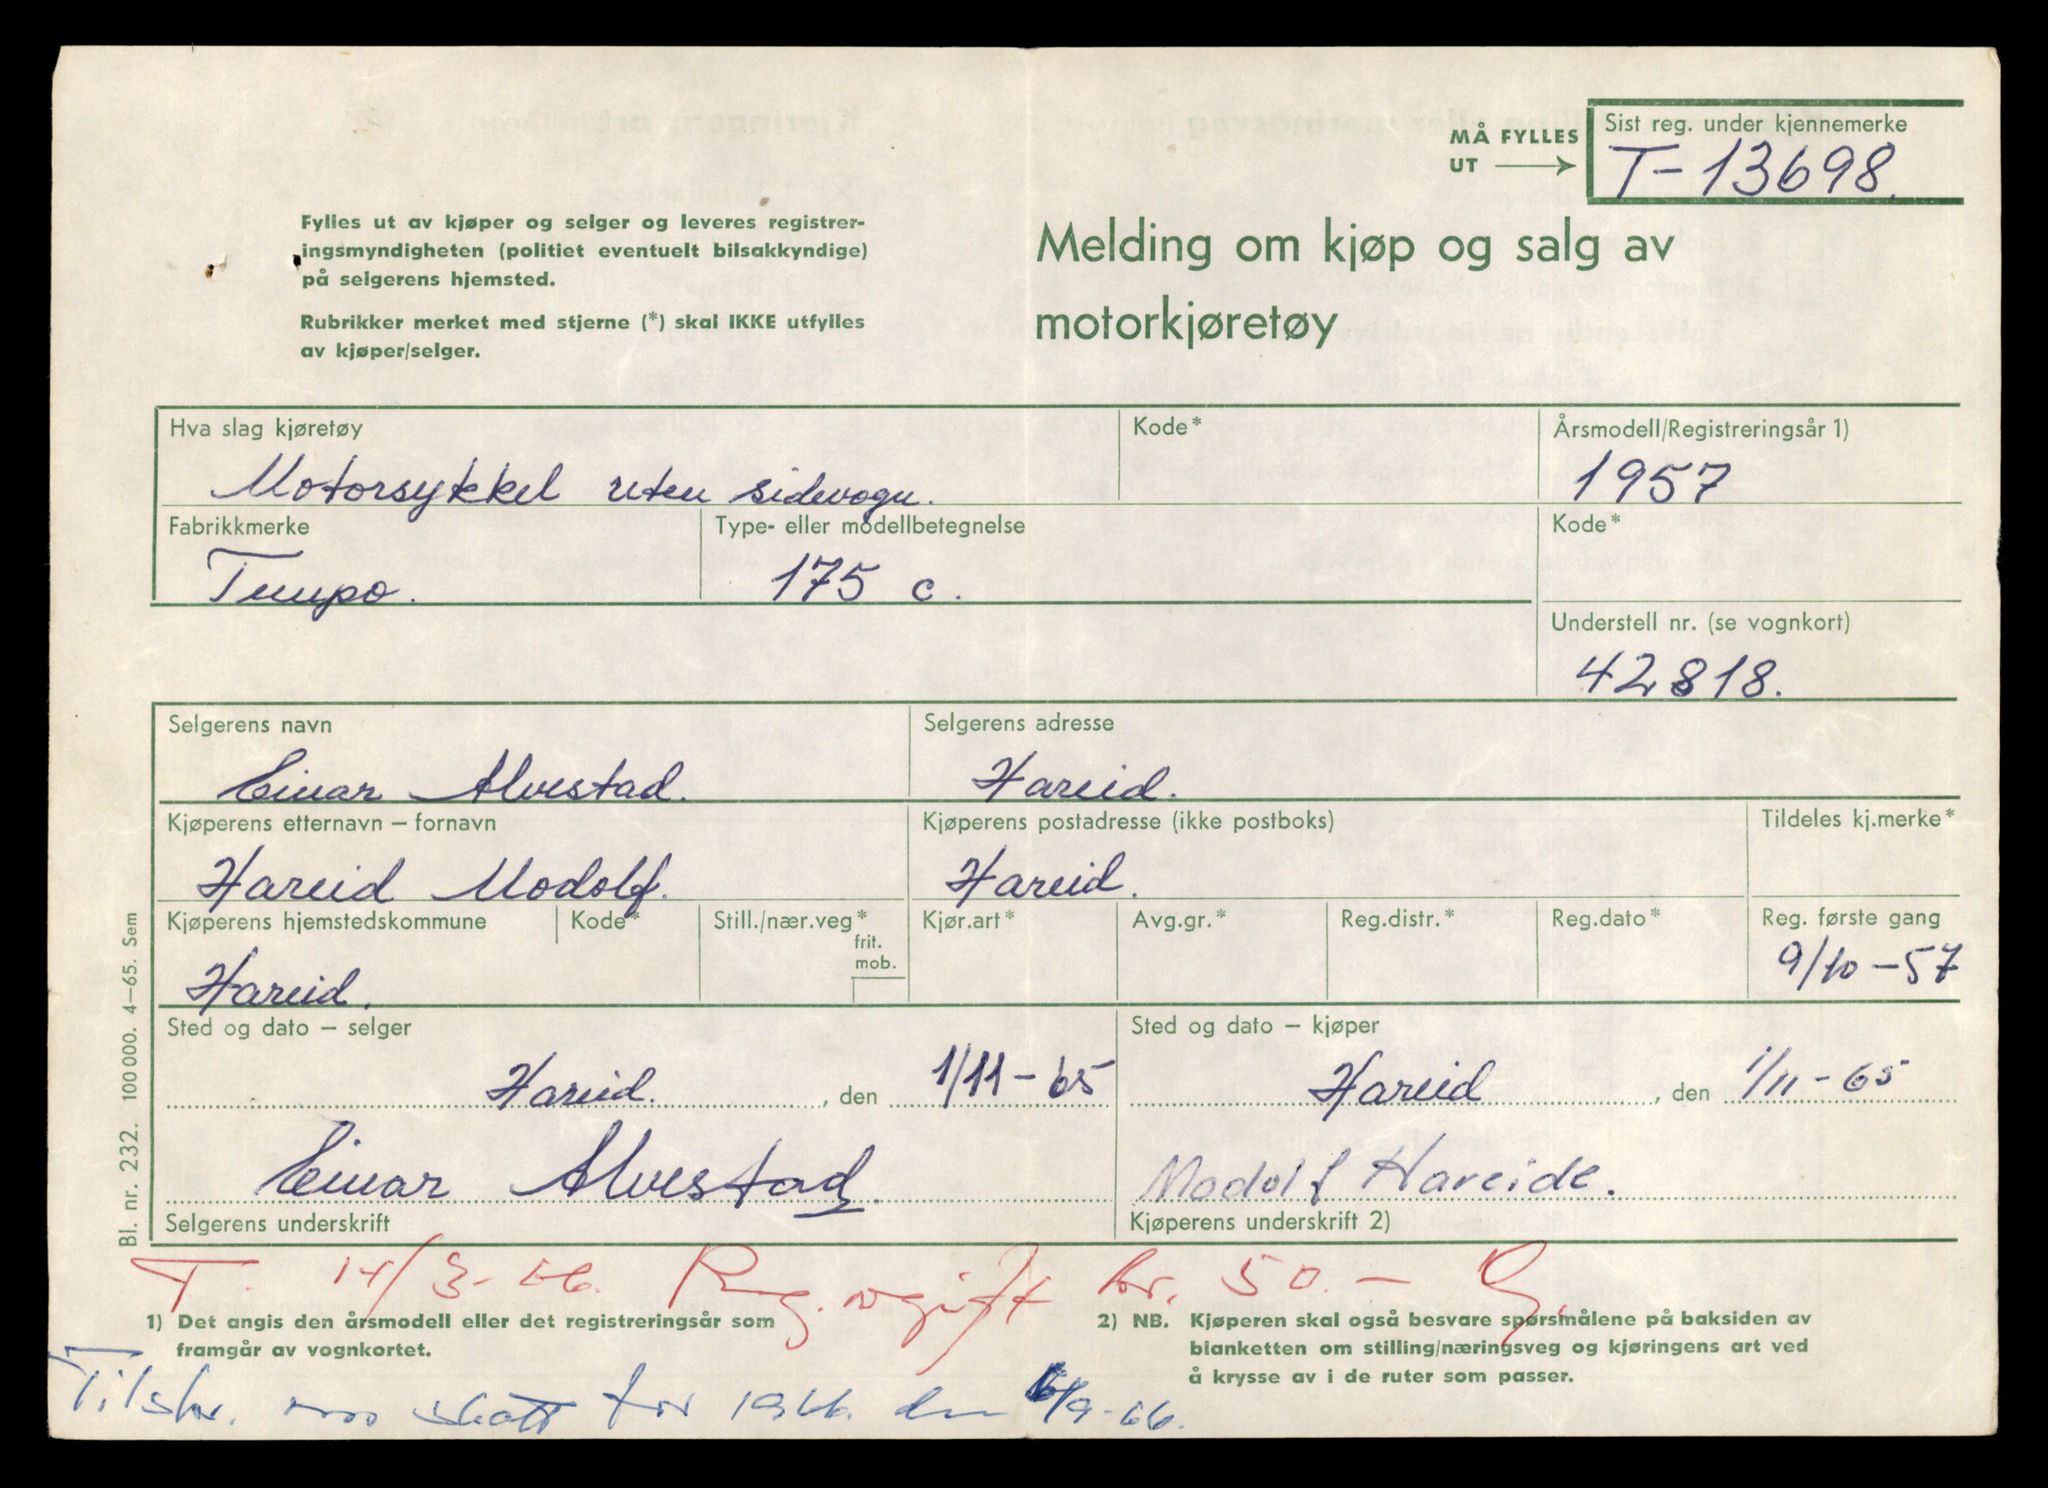 MÅ FYLLES
UT
Sist reg. under kjennemerke
T-13698.
Fylles ut av kjøper og selger og leveres registrer-
ingsmyndigheten (politiet eventuelt bilsakkyndige)
på selgerens hjemsted.
Rubrikker merket med stjerne (*) skal IKKE utfylles
av kjøper/selger.
Melding om kjøp og salg av
motorkjøretøy
Hva slag kjøretøy
Kode*
Årsmodell/Registreringsår 1)
Motorsykkel uten sidevogn.
1957
Fabrikkmerke
Type- eller modellbetegnelse
Kode*
Tempo.
175 c.
Understell nr. (se vognkort)
42818.
Selgerens navn
Selgerens adresse
Einar Alvestad.
Hareid.
Kjøperens etternavn – fornavn
Kjøperens postadresse (ikke postboks)
Tildeles kj.merke*
Hareid Modolf.
Hareid.
Kjøperens hjemstedskommune
Kode*
Still./nær.veg*
frit.
mob.
Kjør.art*
Avg.gr.*
Reg.distr.*
Reg.dato*
Reg. første gang
Hareid.
9/10-57
Sted og dato – selger
Sted og dato – kjøper
Hareid. , den 1/11-65
Hareid , den 1/11-65
Einar Alvestad.
Modolf Hareide.
Selgerens underskrift
Kjøperens underskrift 2)
Bl. nr. 232. 100 000. 4-65. Sem
T. 14/3-66. Reg. avgift kr. 50.-
1) Det angis den årsmodell eller det registreringsår som
framgår av vognkortet.
2) NB. Kjøperen skal også besvare spørsmålene på baksiden av
blanketten om stilling/næringsveg og kjøringens art ved
å krysse av i de ruter som passer.
skatt for 1966. den 6/9-66.